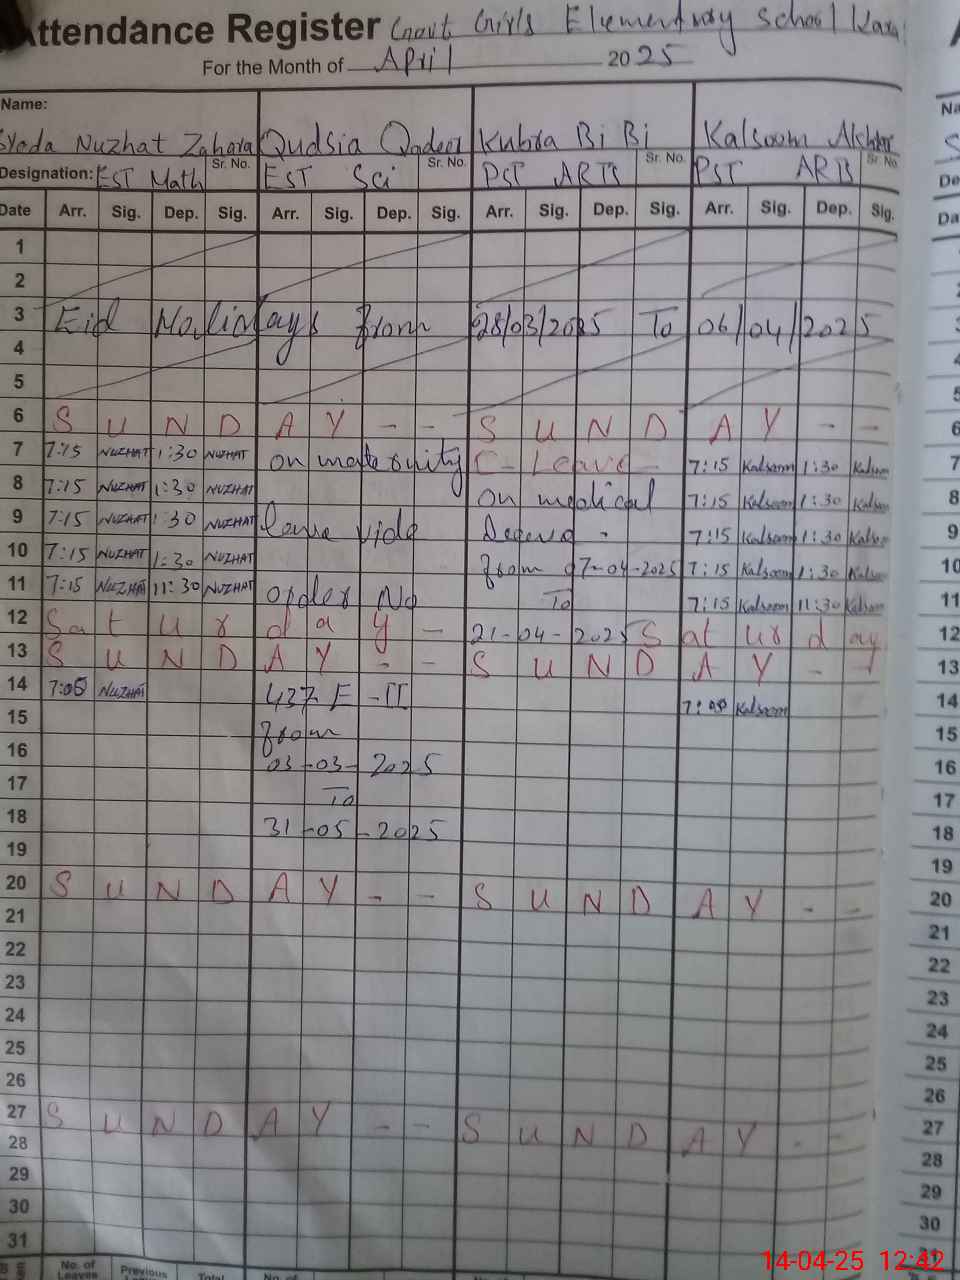 Attendance Register Govt Girls Elementary School
For the Month of April 2025
Name:
Syeda Nuzhat Zahara Qudsia Qadeer Kubra Bi Bi Kalsoom Akhtar
Sr. No. Sr. No. Sr. No. Sr. No.
Designation: EST Math EST Sci PST ARTS PST ARTS
Date Arr. Sig. Dep. Sig. Arr. Sig. Dep. Sig. Arr. Sig. Dep. Sig. Arr. Sig. Dep. Sig.
1
2
3 Eid Holidays from 28/03/2025 To 06/04/2025
4
5
6 S U N D A Y - - S U N D A Y - -
7 7:15 NUZHAT 1:30 NUZHAT on maternity C- Leave - 7:15 Kalsoom 1:30 Kalsoom
8 7:15 NUZHAT 1:30 NUZHAT on medical 7:15 Kalsoom 1:30 Kalsoom
9 7:15 NUZHAT 1:30 NUZHAT leave vide 7:15 Kalsoom 1:30 Kalsoom
10 7:15 NUZHAT 1:30 NUZHAT from 07-04-2025 7:15 Kalsoom 1:30 Kalsoom
11 7:15 NUZHAT 11:30 NUZHAT order No To 7:15 Kalsoom 11:30 Kalsoom
12 Sa t u r d a y - 21-04-2025 S at ur d ay
13 S U N D A Y - - S U N D A Y - -
14 NUZHAT 437 E-II Kalsoom
15 from
16 03-03-2025
17 To
18 31-05-2025
19
20 S U N D A Y - - S U N D A Y - -
21
22
23
24
25
26
27 S U N D A Y - - S U N D A Y - -
28
29
30
31
No. of Leaves Previous Total No. of
14-04-25 12:42